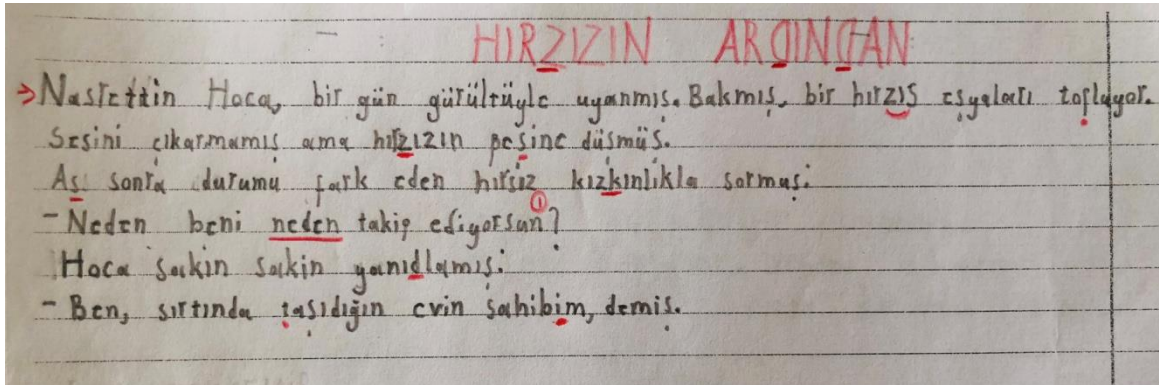 HIRZIZIN ARDINDAN
Nasrettin Hoca, bir gün gürültüyle uyanmış. Bakmış, bir hırzıs eşyaları topluyor.
Sesini çıkarmamış ama hırzızın peşine düşmüş.
As sonra durumu fark eden hırsız kızkınlıkla sormuş:
- Neden beni neden takip ediyorsun?
1
Hoca sakin sakin yanıdlamış:
- Ben, sırtında taşıdığın evin sahibim, demiş.